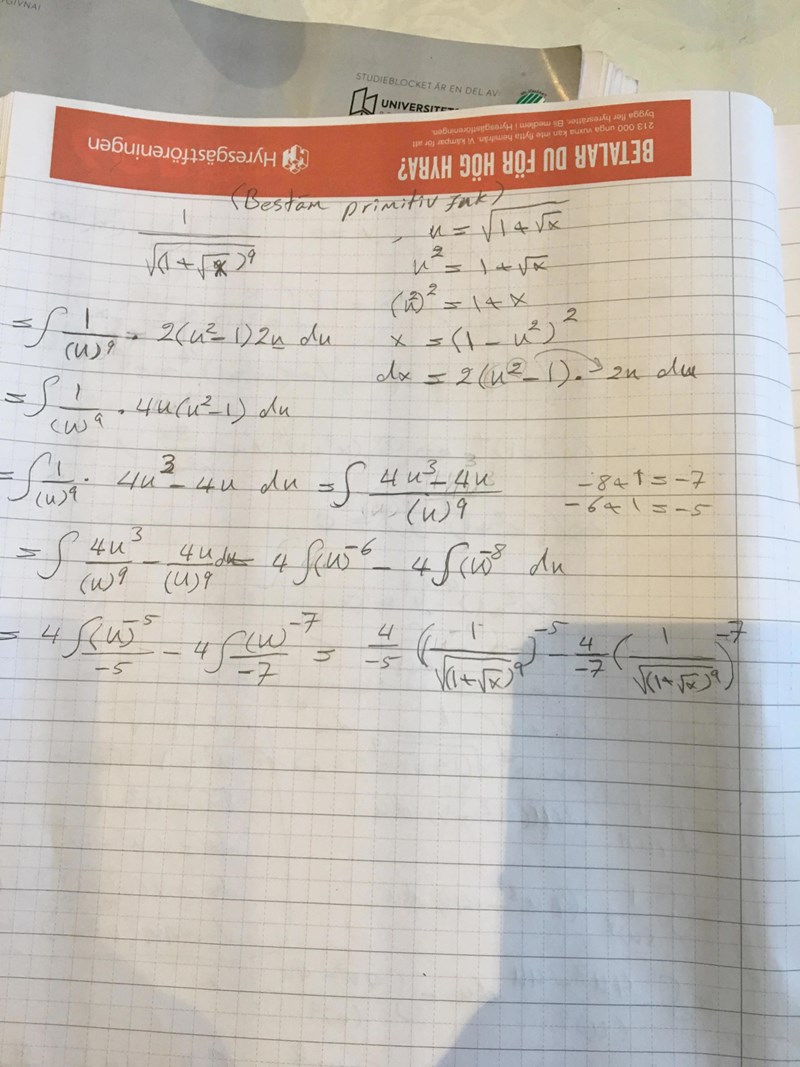 STUDIEBLOCKET ÄR EN DEL AV
BETALAR DU FÖR HÖG HYRA?
213 000 unga vuxna kan inte flytta hemifrån. Vi kämpar för att
bygga fler hyresrätter. Bli medlem i Hyresgästföreningen.
Hyresgästföreningen
(Bestäm primitiv fnk)
1/√(1+√x)^9
u = √(1+√x)
u² = 1+√x
(u²)² = 1+x
x = (1-u²)²
dx = 2(u²-1)·2u du
= ∫ 1/(u)^9 · 2(u²-1)2u du
= ∫ 1/(u)^9 · 4u(u²-1) du
= ∫ 1/(u)^9 · 4u³-4u du = ∫ (4u³-4u)/(u)^9
-8+1=-7
-6+1=-5
= ∫ 4u³/(u)^9 - 4u/(u)^9 du 4∫(u)^-6 - 4∫(u)^-8 du
= 4∫(u)^-5/-5 - 4∫(u)^-7/-7 = 4/-5 (1/√(1+√x)^9)^-5 - 4/-7 (1/√(1+√x)^9)^-7